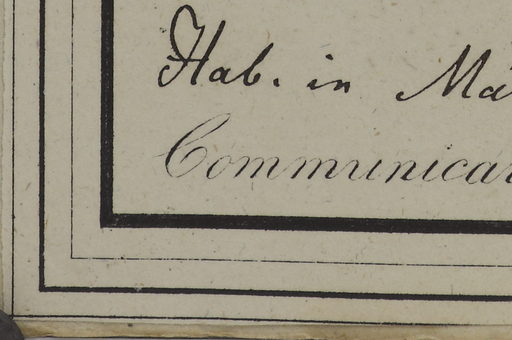 Hab. in Ma
Communicar